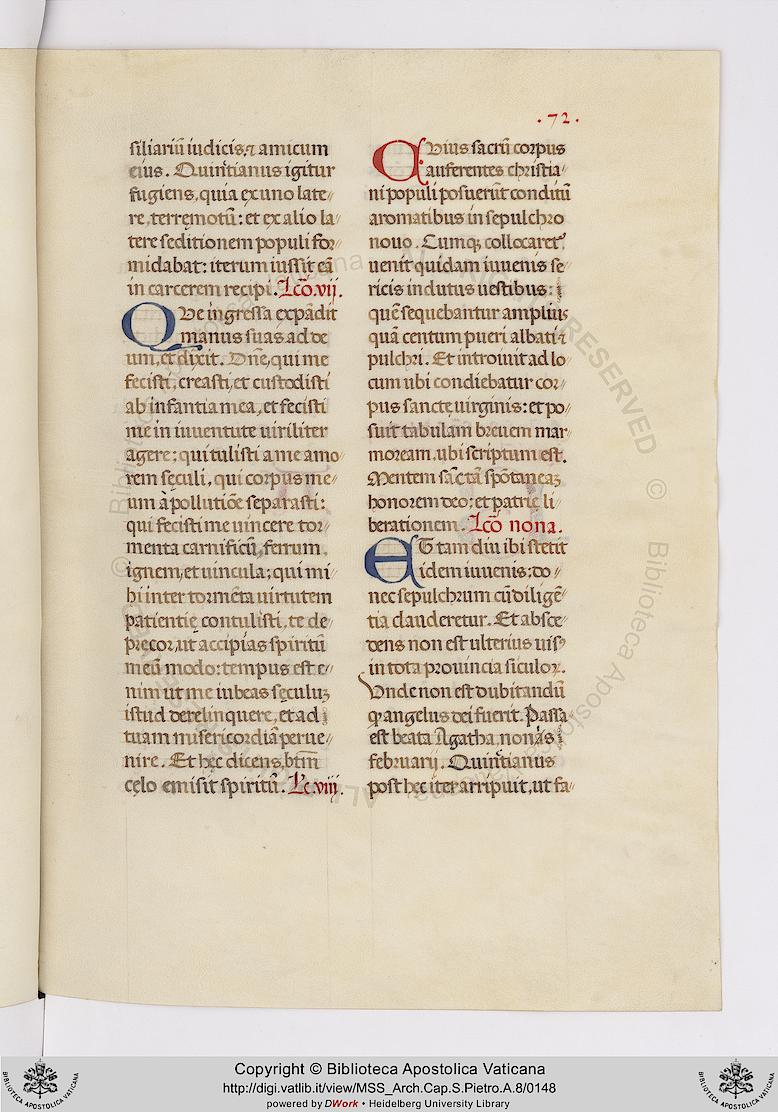 .72.
siliariũ iudicis, ⁊ amicum
eius. Quintianus igitur
fugiens, quia ex uno late-
re, terręmotũ: et ex alio la-
tere seditionem populi for-
midabat: iterum iussit eã
in carcerem recipi. Lcõ. vij.
Que ingressa expãdit
manus suas ad de
um, et dixit. Dñe, qui me
fecisti, creasti, et custodisti
ab infantia mea, et fecisti
me in iuuentute uiriliter
agere: qui tulisti a me amo-
rem sęculi, qui corpus me-
um à pollutiõe separasti:
qui fecisti me uincere tor-
menta carnificũ, ferrum,
ignem, et uincula; qui mi-
hi inter tormẽta uirtutem
patientię contulisti, te de-
precor, ut accipias spiritũ
meũ modo: tempus est e-
nim ut me iubeas sęculuꝫ
istud derelinquere, et ad
tuam misericordiã perue-
nire. Et hęc dicens, btm̃
cęlo emisit spiritũ. Lc. viij.
Cuius sacrũ corpus
auferentes christia-
ni populi posuerũt conditũ
aromatibus in sepulchro
nouo. Cumqꝫ collocaret᷑,
uenit quidam iuuenis se-
ricis indutus uestibus:
quẽ sequebantur amplius
quã centum pueri albati ⁊
pulchri. Et introiuit ad lo-
cum ubi condiebatur cor-
pus sanctę uirginis: et po-
suit tabulam breuem mar-
moream, ubi scriptum est.
Mentem sãctã spõtaneaꝫ
honorem deo: et patrię li-
berationem. Lcõ nona.
Et tam diu ibi stetit
idem iuuenis: do-
nec sepulchrum cũ diligẽ-
tia clauderetur. Et absce-
dens non est ulterius uisꝰ
in tota prouincia siculoꝝ.
Vnde non est dubitandũ
ꝙ angelus dei fuerit. Passa
est beata Agatha, nonàs
februarij. Quintianus
post hęc iter arripuit, ut fa-
Copyright © Biblioteca Apostolica Vaticana
http://digi.vatlib.it/view/MSS_Arch.Cap.S.Pietro.A.8/0148
powered by DWork • Heidelberg University Library
BIBLIOTECA APOSTOLICA VATICANA
BIBLIOTECA APOSTOLICA VATICANA